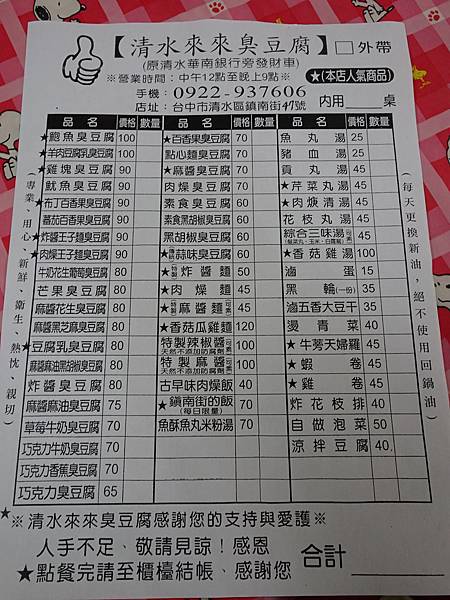 【清水來來臭豆腐】□外帶
(原清水華南銀行旁發財車)
※營業時間：中午12點至晚上9點※
★(本店人氣商品)
手機：0922-937606
店址：台中市清水區鎮南街47號
內用___桌
品名 價格 數量 品名 價格 數量 品名 價格 數量
★鮑魚臭豆腐 100 ★百香果臭豆腐 70 魚丸湯 25
★羊肉豆腐乳臭豆腐 100 點心麵臭豆腐 70 豬血湯 25
★雞塊臭豆腐 90 ★麻醬臭豆腐 70 貢丸湯 45
魷魚臭豆腐 90 肉燥臭豆腐 70 ★芹菜丸湯 45
★布丁百香果臭豆腐 90 素食臭豆腐 60 ★肉焿清湯 45
蕃茄百香果臭豆腐 90 素食黑胡椒臭豆腐 60 花枝丸湯 45
★炸醬王子麵臭豆腐 90 黑胡椒臭豆腐 60 綜合三味湯(可素) 45
★肉燥王子麵臭豆腐 90 ★蒜味臭豆腐 60 ★香菇雞湯 100
牛奶花生葡萄臭豆腐 80 ★特製炸醬麵 50 滷蛋 15
芒果臭豆腐 80 ★肉燥麵 45 黑輪(一份) 35
麻醬花生臭豆腐 80 ★特製麻醬麵(可素) 45 滷五香大豆干 35
麻醬黑芝麻臭豆腐 80 ★香菇瓜雞麵 120 燙青菜 40
★豆腐乳臭豆腐 80 特製辣椒醬(可素) 100 ★牛蒡天婦羅 45
天然不添加防腐劑
麻醬麻油黑胡椒臭豆腐 80 特製麻醬(可素) 100 ★蝦卷 45
天然不添加防腐劑
炸醬臭豆腐 80 古早味肉燥飯 40 ★雞卷 45
麻醬麻油臭豆腐 75 ★鎮南街的飯 70 炸花枝排 40
(每日限量)
草莓牛奶臭豆腐 70 魚酥魚丸米粉湯 70 自做泡菜 50
巧克力牛奶臭豆腐 70 涼拌豆腐 40
巧克力香蕉臭豆腐 70
巧克力臭豆腐 65
(專業、用心、新鮮、衛生、熱忱、親切)
(每天更換新油，絕不使用回鍋油)
※清水來來臭豆腐感謝您的支持與愛護※
人手不足、敬請見諒！感恩
合計
★點餐完請至櫃檯結帳、感謝您